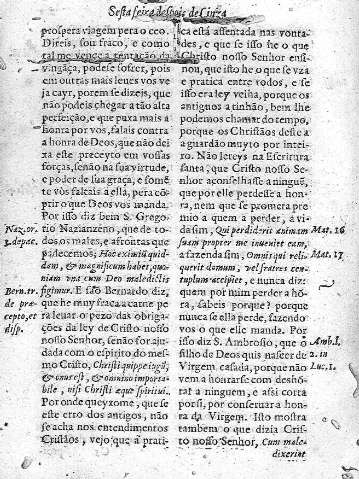 Sesta feira despois de Cinza
prospera viagem pera o ceo.
Direis, sou fraco, e como
tal me vence a tentação da
vingãça, podese sofrer, pois
em outras mais leues vos ve
ja cayr, porem se dizeis, que
não podeis chegar a tão alta
perfeição, e que puxa mais a
honra por vos, falais contra
a honra de Deos, que não dei
xa este preceyto em vossas
forças, senão na sua virtude,
e poder de sua graça, e some
te vòs falcais a ella, pera cõ
prir o que Deos vos manda.
Por isso diz bem S. Grego
rio Nazianzeno, que de to-
dos os males, e afrontas que
padecemos; Hoc eximiũ quid
dam, & magnificum habet, quo
niam vna cum Deo maledictis
figimur. E são Bernardo diz,
que he muy fraca a carne pe
ra leuar o pezo das obrigaç
ões da ley de Cristo nosso
nosso Senhor, senão for aju-
dada com o espirito do mes
mo Cristo, Christi quippe iugũ,
& onus est, & omnino importa
bile, nisi Christi æque spiritui.
Por onde queyxome, que se
este erro dos antigos, não
se acha nos entendimentos
Cristãos, vejo que a prati-
Naz. or.
3. de pac.
Bern. tr.
de præ
cepto, et
disp.
ca está assentada nas vonta-
des, e que se isso he o que
Christo nosso Senhor ensi-
nou, que isto he o que se vza
e pratica entre vodos, e se
isso era ley velha, porque os
antiguos a tinhão, bem lhe
podemos chamar do tempo,
porque os Christãos deste a
a guardão muyto por intei-
ro. Não lereys na Escritura
santa, que Cristo nosso Se-
nhor aconselhasse a ninguẽ,
que por elle perdesse a hon-
ra, nem que se prometera pre-
mio a quem a perder, a vi-
da sim, Qui perdiderit animam
suam propter me inueniet eam,
a fazenda sim, Omnis qui reli-
querit domum, vel fratres cen-
tuplum accipiet, e nunca diz:
quem por mim perder a hõ-
ra, sabeis porque? porque
nunca se ella perde, fazendo
vos o que elle manda. Por
isso diz S. Ambrosio, que o
filho de Deus quis nascer de
Virgem casada, porque não
vem a honrarse com deshõ-
rar a ninguem, e assi corta
por si, por conseruar a hon-
ra da Virgem. Isto mostra
tambem o que dizia Cris
to nosso Senhor, Cum male-
dixerint
Mat. 16
Mat. 17
Amb. l.
2. in
Luc. 1.